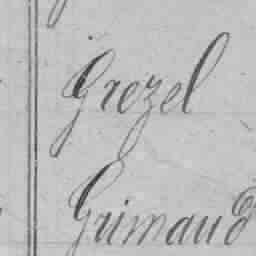 Grezel
Grimaud